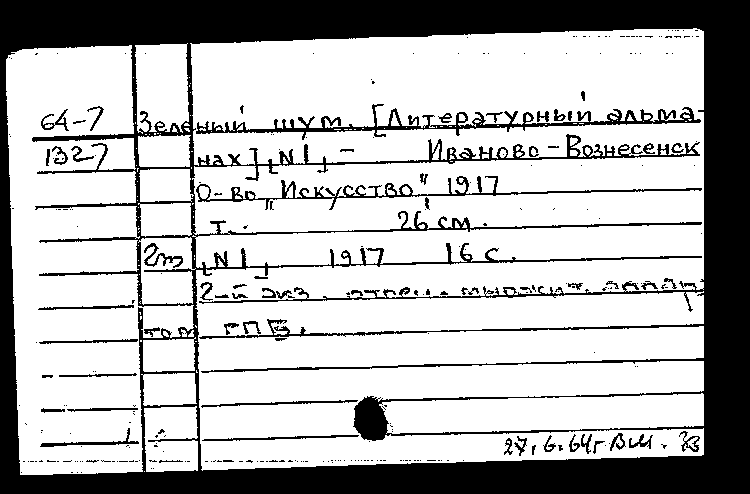 64-7 Зеленый шум. [Литературный альма-
1327 нах] [N1] - Иваново-Вознесенск
О-во „Искусство" 1917
т. 26 см.
2т [N1] 1917 16 с.
2-й экз.
том ГПБ.
27.6.64г